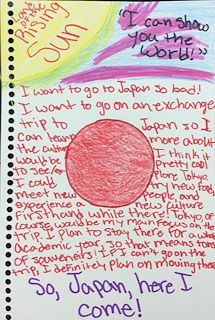 Land of the
Rising
Sun
"I can show
you the
World!"
I want to go to Japan so bad!
I want to go on an exchange
trip to Japan so I
can learn more about
the culture. I think it
would be pretty cool
to see/explore Tokyo.
I could try new foods,
meet new people, and
experience a new culture
firsthand while there! Tokyo, of
course, would be my main focus on the
trip. I plan to stay there for a whole
Academic year, so that means tons
of souvenirs! If I can't go on the
trip, I definitely plan on moving there
So, Japan, here I
come!